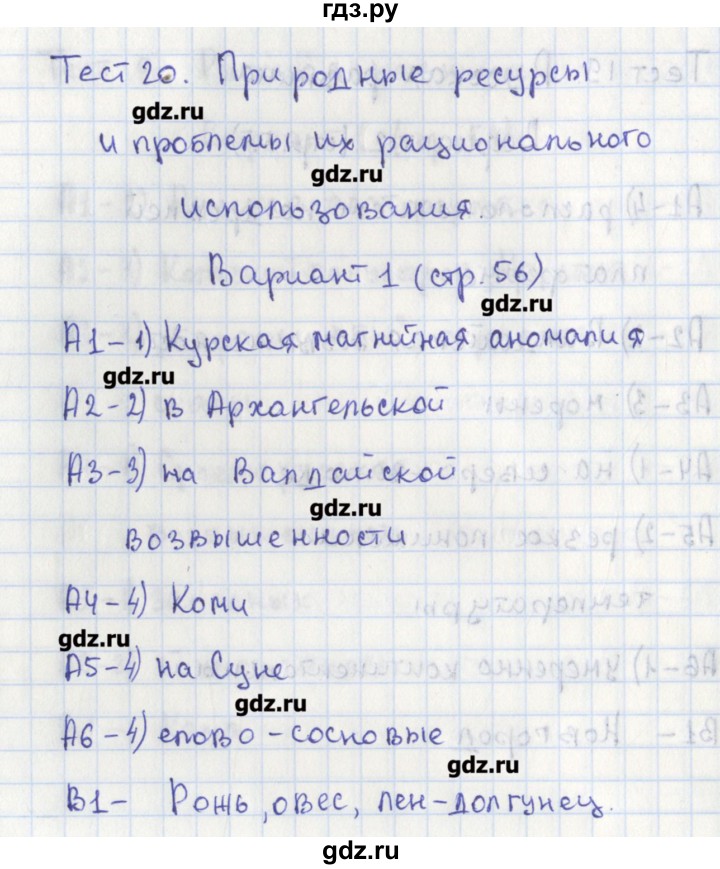 гдз.ру
Тест 20. Природные ресурсы
gdz.ru
и проблемы их рационального
gdz.ru
использования.
Вариант 1 (стр. 56)
gdz.ru
А1-1) Курская магнийная аномалия
gdz.ru
А2-2) в Архангельской
А3-3) на Валдайской
gdz.ru
возвышенности
А4-4) Коми
gdz.ru
А5-4) на Суне
gdz.ru
А6-4) елово-сосновые
gdz.ru
В1- Рожь, овес, лен-долгунец.
gdz.ru